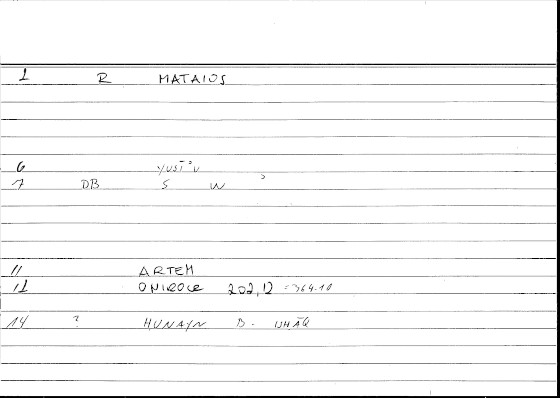 1 R MATAIOS
6 YUSṬ°U
7 DB S W ᵓ
11 ARTEM
12 ONIROCR 202,12 = 364.10
14 ? HUNAYN B. ISHĀQ